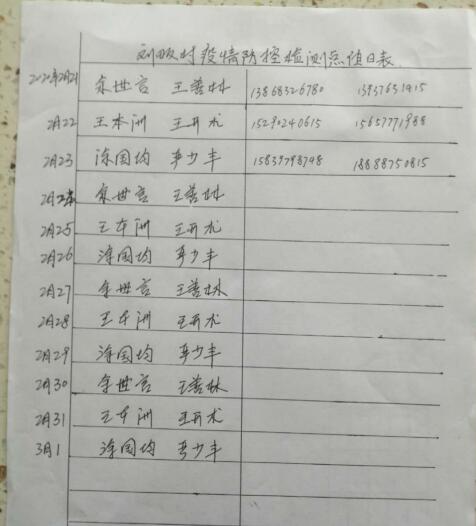 刘坂村疫情防控检测点值日表
2020年2月21 余世言 王善林 13868326780 13937631915
2月22 王本洲 王开尤 15290240615 15657771988
2月23 涂国均 辛少丰 15837798798 18888750815
2月24 余世言 王善林
2月25 王本洲 王开尤
2月26 涂国均 辛少丰
2月27 余世言 王善林
2月28 王本洲 王开尤
2月29 涂国均 辛少丰
2月30 余世言 王善林
2月31 王本洲 王开尤
3月1 涂国均 辛少丰